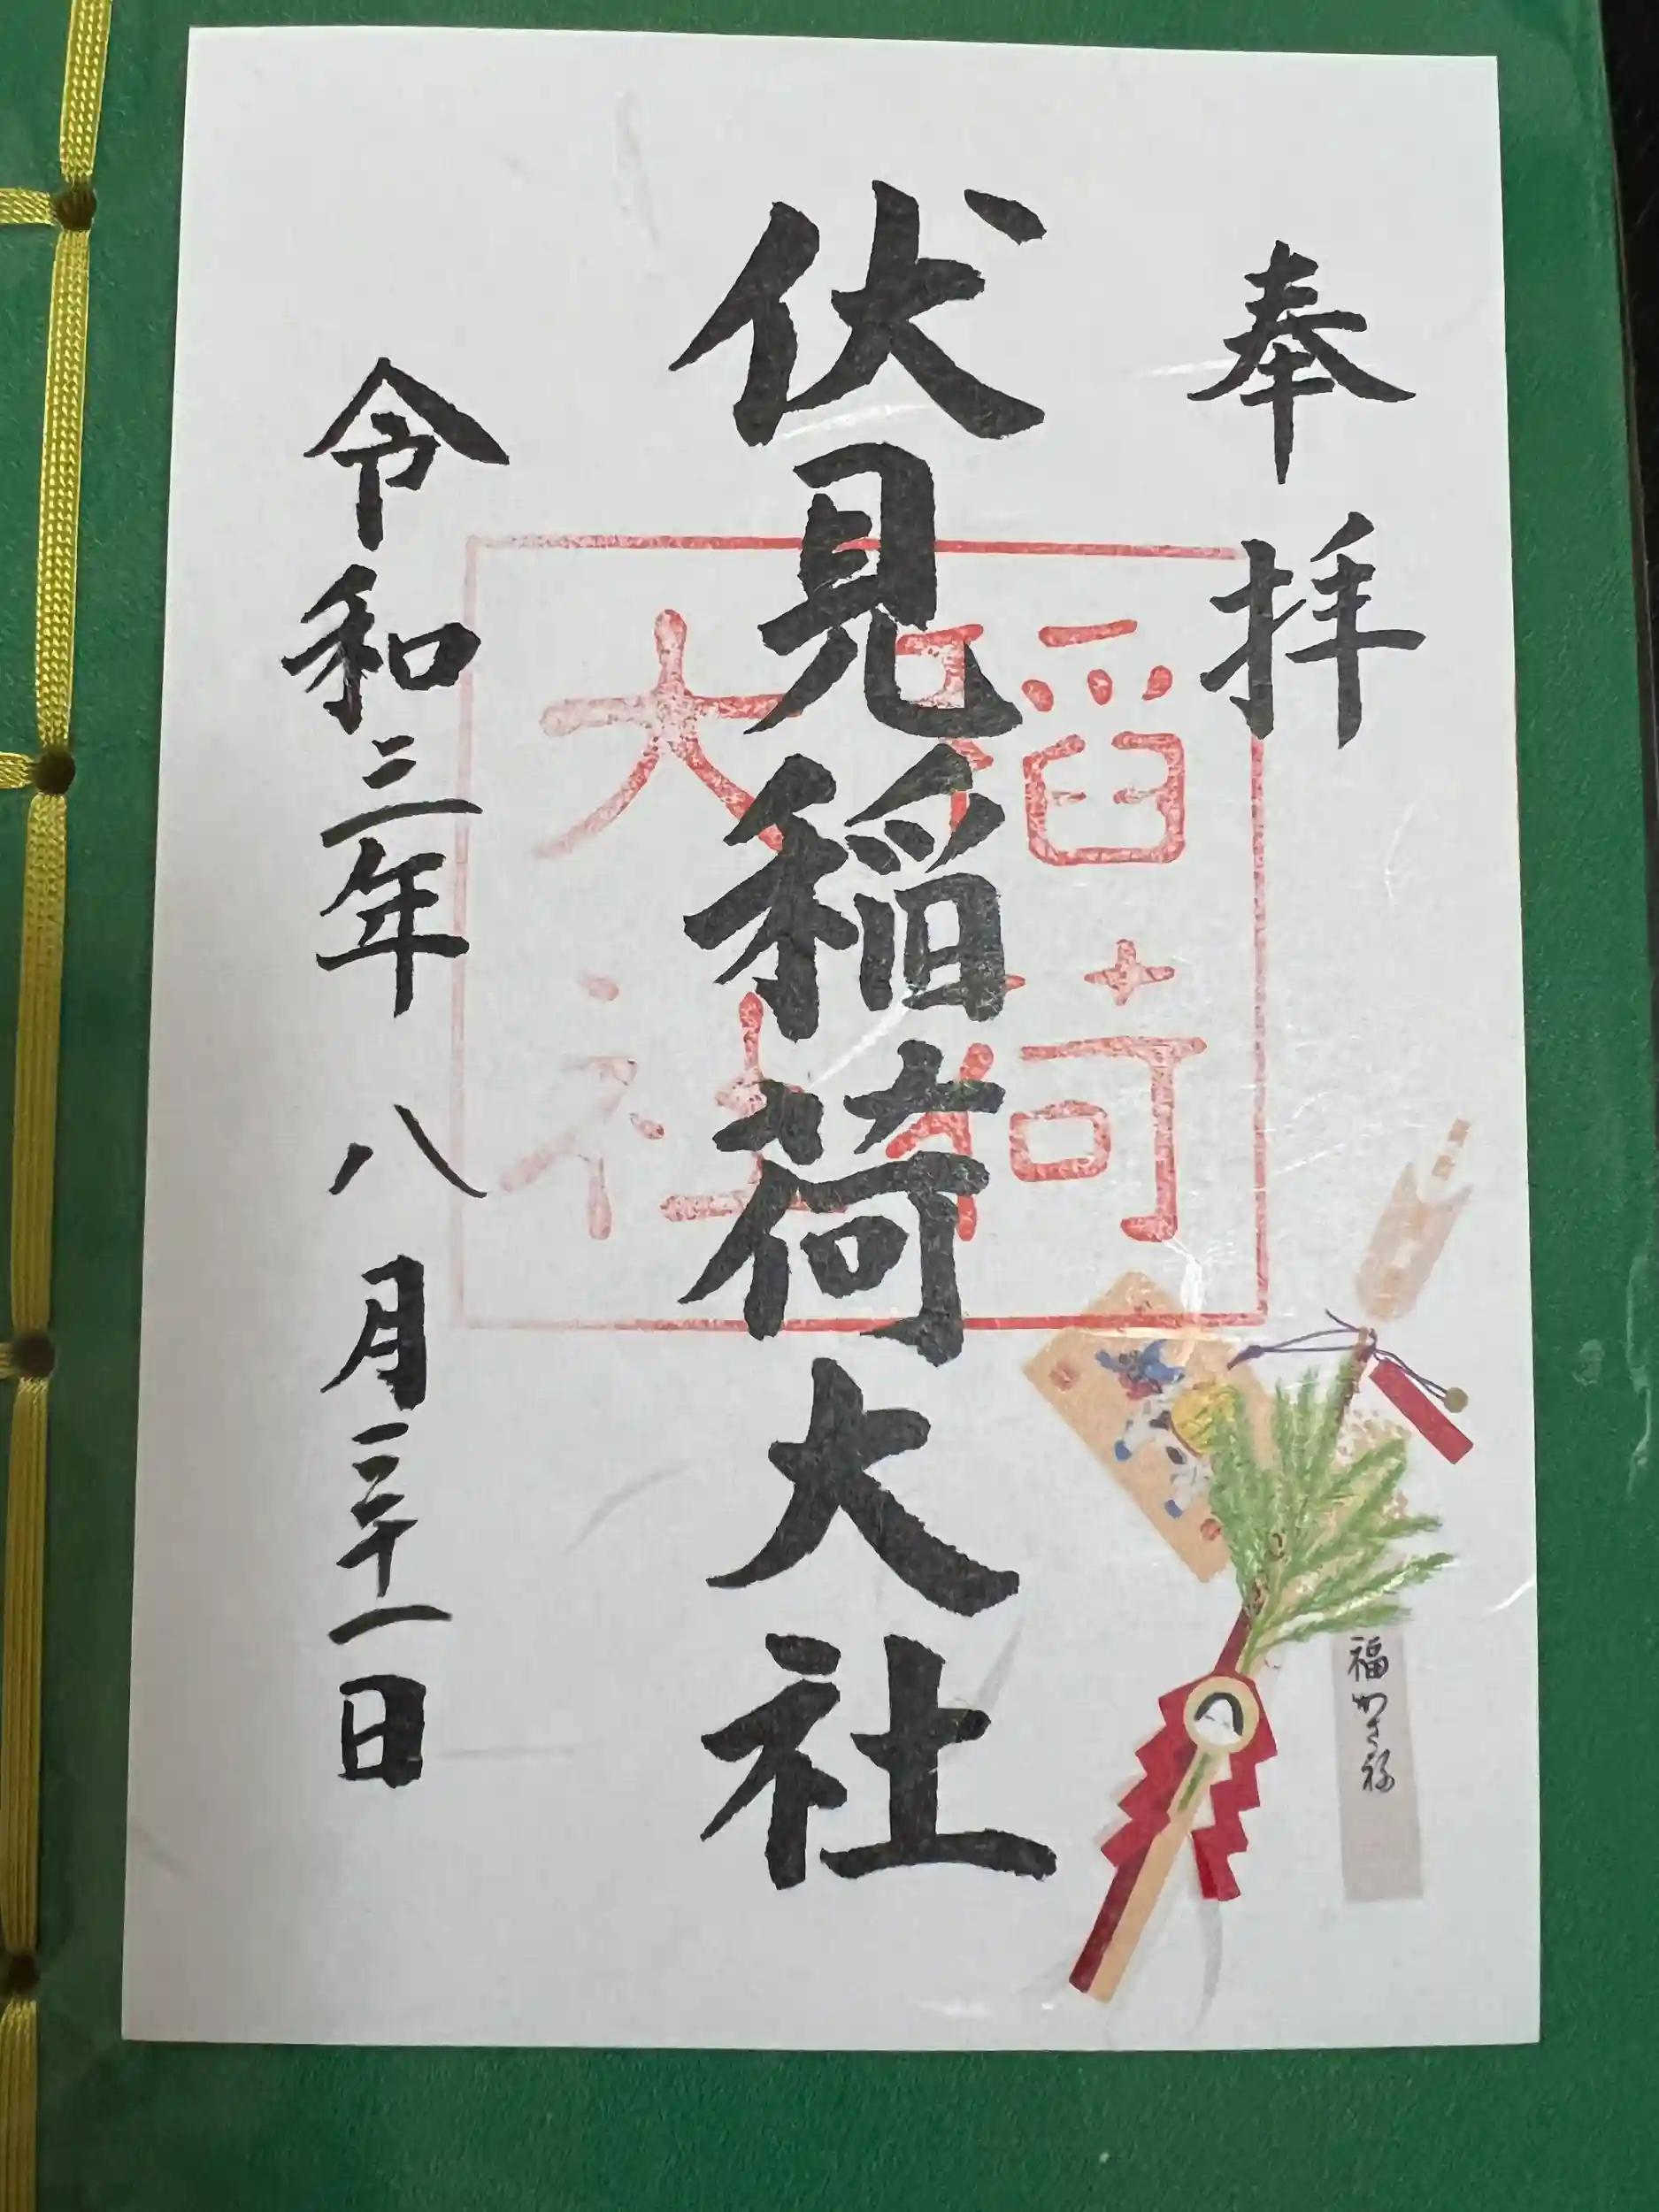 奉拝
伏見稲荷大社
稲荷
大社
令和三年八月三十一日
福かさね